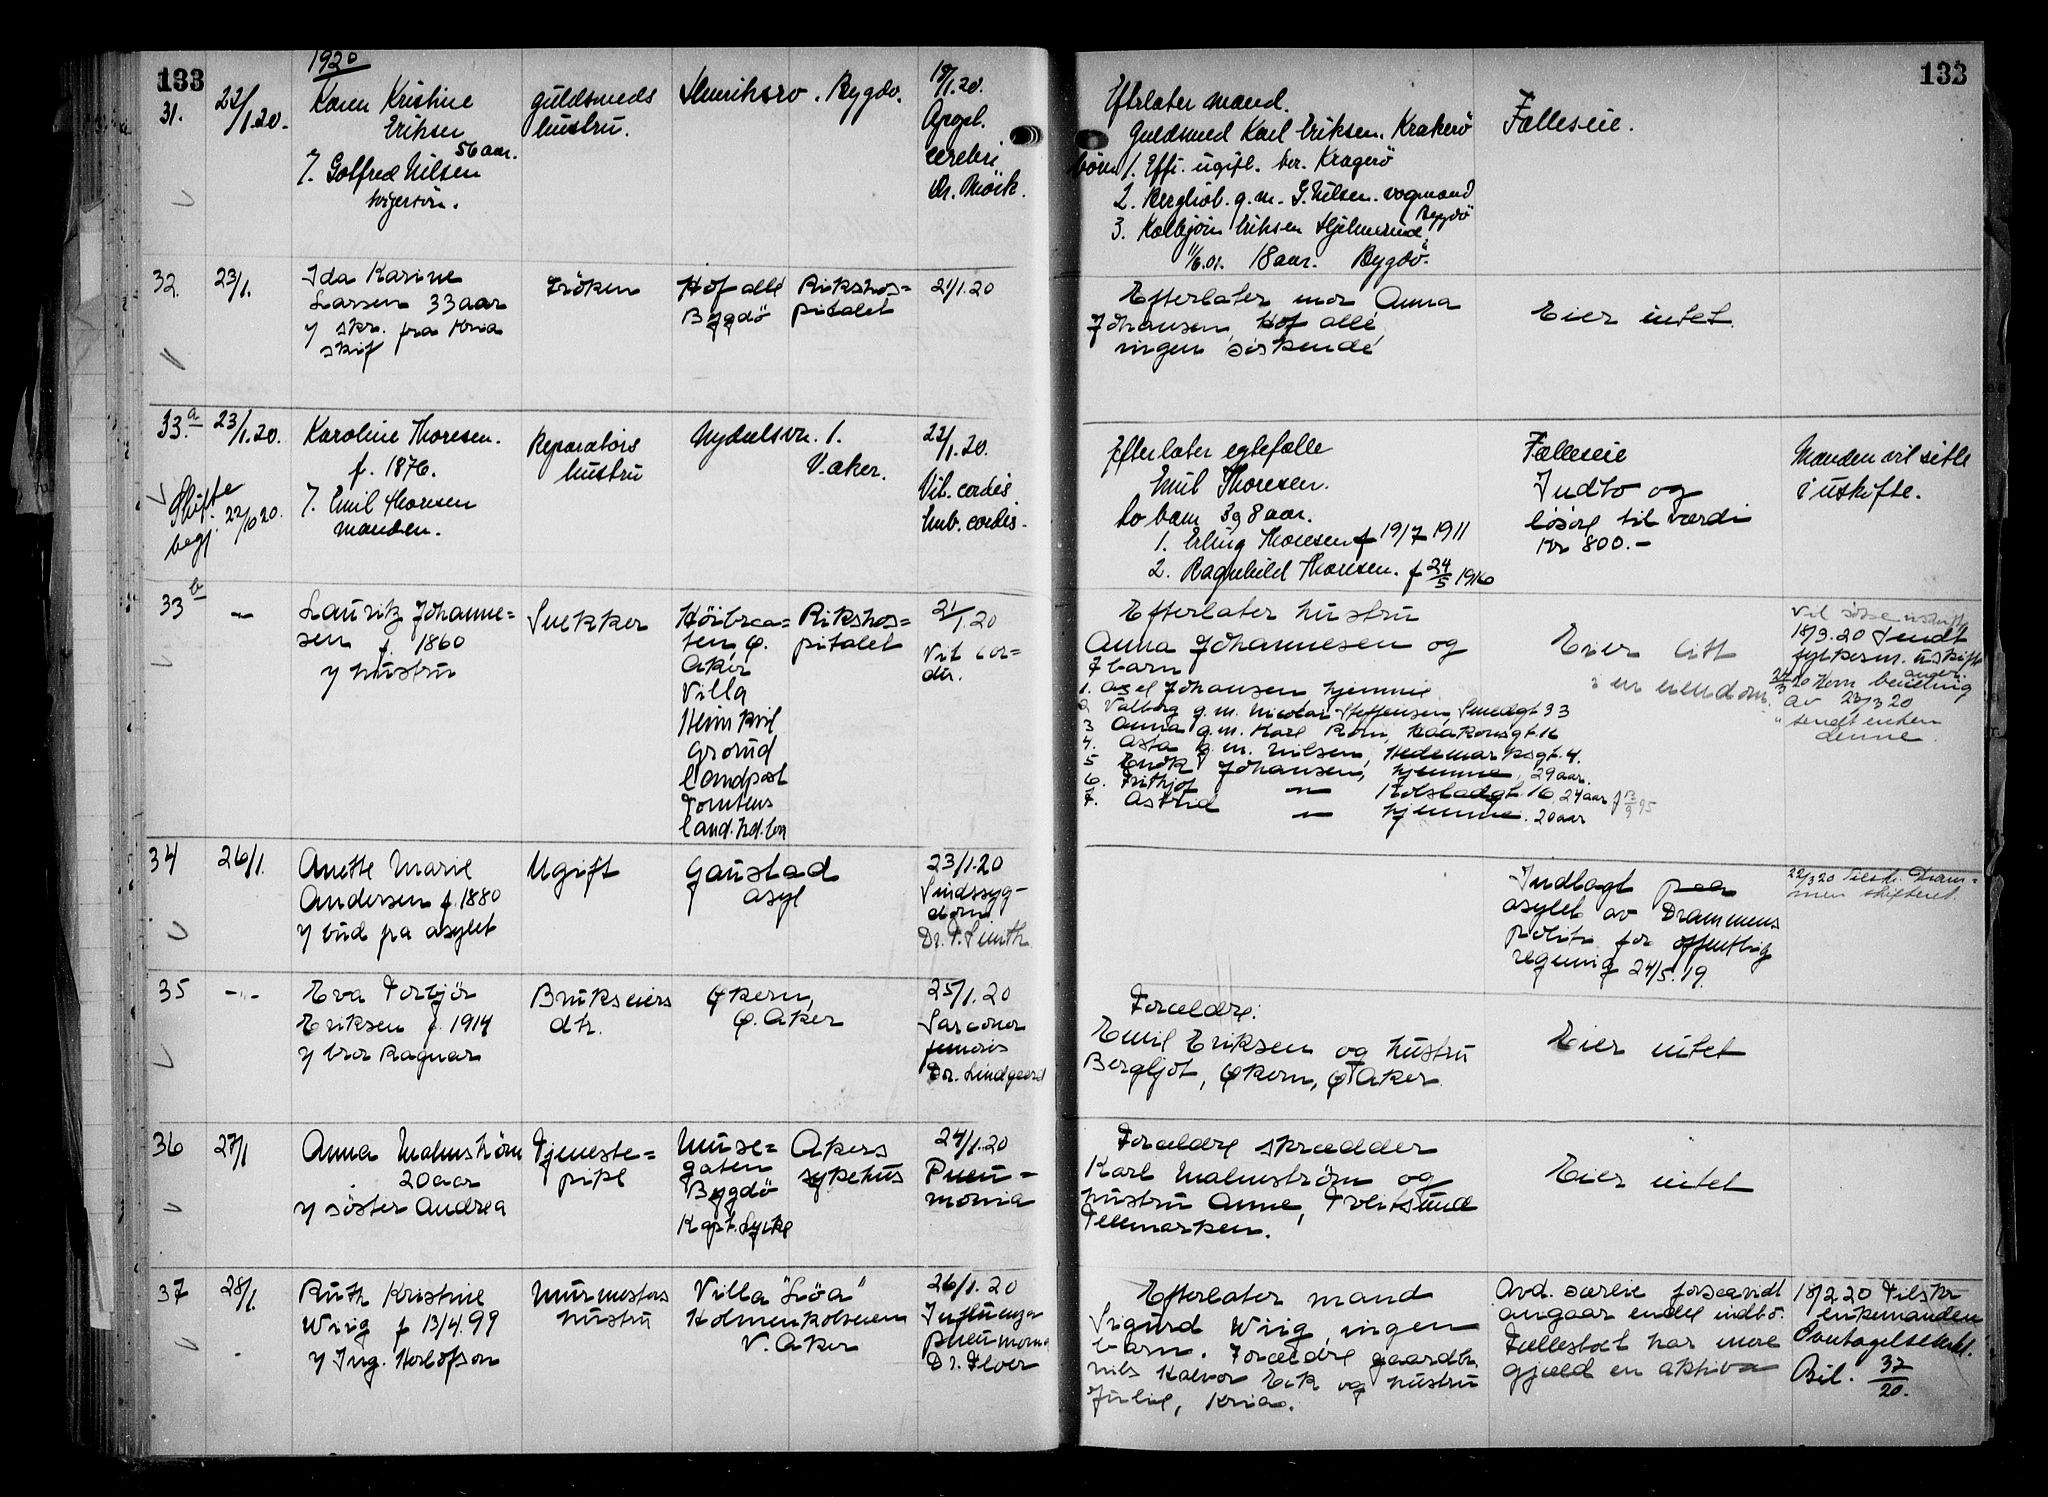 133
1920
133
31.
22/1.20.
Karen Kristine
Eriksen
56 aar.
7. Golfred Nilsen
svigersön.
guldsmeds
hustru.
Bygdö.
18/1.20.
Apopl.
cerebri
Dr. Mörk.
Efterlater mand.
Guldsmed Karl Eriksen. Krakerö
börn 1. Effi. ugift. ber. Kragerö
2. Bergliot. g.m. G. Nilsen. vogmand
Bygdö
3. Kolbjörn Eriksen
11/6.01. 18 aar. Bygdö.
Fælleseie.
32.
23/1.
Ida Karine
Larsen 33 aar
y skr. fra Kria
skif
Fröken
Hof allé
Bygdö
Rikshos=
pitalet
21/1.20
Efterlater mor Anna
Johansen, Hof allé
ingen söskende
Eier intet.
33.a
23/1.20.
Skifte
begj. 22/10 20.
Karoline Thoresen.
f. 1876.
7. Emil Thoresen
manden.
Reparatörs
hustru
Nydalsvn. 1.
V. aker.
22/1.20.
Vit. cordis
Emb. cordis.
Efterlater egtefælle
Emil Thoresen.
to barn 3 og 8 aar.
1. Erling Thoresen f 19/7 1911
2. Ragnhild Thoresen. f 24/5 1916
Fælleseie
Indbo og
lösöre til værdi
Kr 800.-
Manden vil sitte
i uskifte.
33 b
-"-
Lauritz Johanne=
sen f. 1860
y hustru
Snekker
Höibraa=
ten Ø.
Aker
Villa
Heimkvil
Grorud
landpost
Tomtens
land.hd.ln
Rikshos=
pitalet
21/1.20
Vit cor=
dis.
Efterlater hustru
Anna Johannesen og
7 barn
1. Axel Johansen hjemme
2 Valborg g.m. Nicolai Steffensen, Smedgt 33
3 Anna g.m. Karl Rom, Haakonsgt. 16
4. Asta g.m. Nilsen, Hedemarksgt. 4.
5 Johansen, hjemme, 29 aar.
6. Frithjof -"- Kolstadgt. 16, 24 aar f 13/9 95
7. Astrid -"- hjemme. 20 aar
Eier litt
i en eiendom.
Vil söke uskifte
18/3.20 Sendt
uskifte
24/3 20 Kom bevilling
av 23/3 20
" sendt enken
denne.
34
26/1.
Anette Marie
Andersen f. 1880
y bud fra asylet
Ugift
Gaustad
asyl
23/1.20
Sindssyg-
dom
Dr. P. Smith.
Indlagt paa
asylet av Drammens
politi for offentlig
regning 24/5.19.
22/3 20 Tilskr. Dram=
men skifteret.
35
-"-
Eva Torbjör
Eriksen f. 1914
y bror Ragnar
Brukseiers
dtr.
Økern,
Ø. Aker
25/1.20
Sarcoma
femoris
Dr. Lindgaard
Forældre:
Emil Eriksen og hustru
Bergljot, Økern, Ø Aker
Eier intet
36
27/1
Anna Malmström
20 aar
y söster Andrea
Tjeneste=
pike
Muse=
gaten
Bygdö
Kapt. Lycke
Akers
sykehus
24/1.20
Pneu=
monia
Forældre skrædder
Karl Malmstrøm og
hustru Anne, Tveitsund
Telemarken.
Eier intet
37
28/1.
Ruth Kristine
Wiig f 13/4.99
y Ing. Herlofson
Murmesters
hustru
Villa "Liöa"
Holmenkolveien
V. Aker
26/1.20
Influenza
pneumonia
Dr. Floer
Efterlater mand
Sigurd Wiig, ingen
barn. Forældre gaardbr.
Nils Halvor Eek og hustru
Julie, Kria.
Avd. særeie forsaavidt
angaar endel indbo.
Fællesboet har mere
gjæld en aktiva
18/2 20 Tilskr
enkemanden
Overtagelseserkl.
Bil. 37/20.